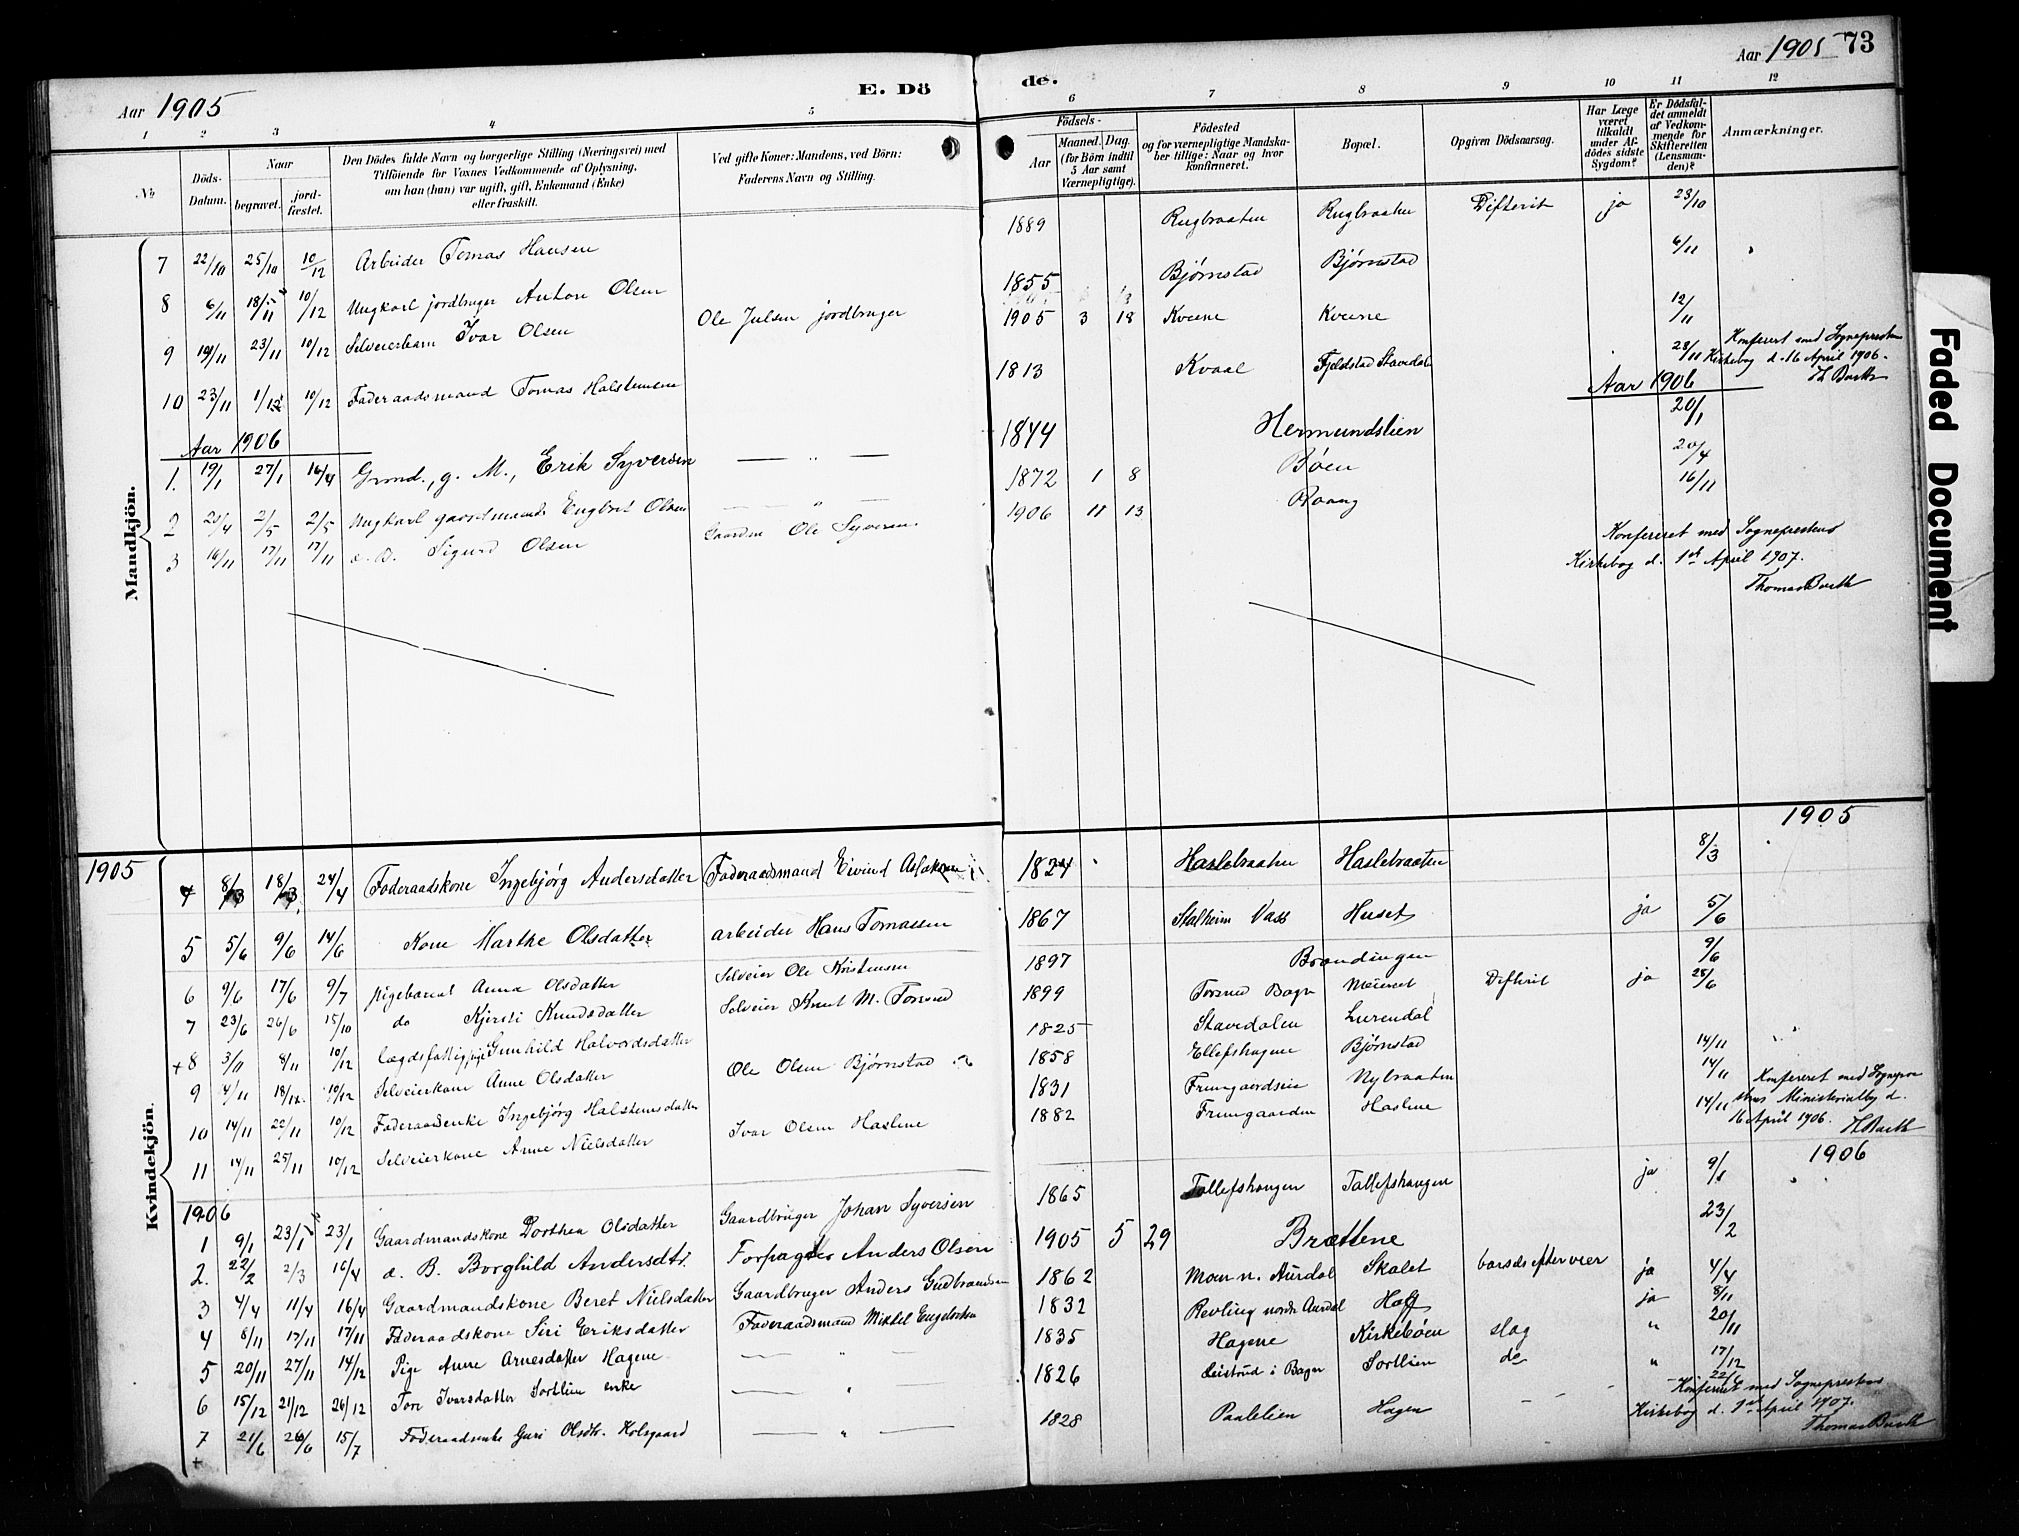 Aar 1905
E. Dö
de.
Aar 1905 73
1 2 3 4 5 6 7 8 9 10 11 12
No
Döds-Datum.
Naar
begravet. jord-fæstet.
Den Dödes fulde Navn og borgerlige Stilling (Næringsvei) med
Tilföiende for Voxnes Vedkommende af Oplysning,
om han (hun) var ugift, gift, Enkemand (Enke)
eller fraskilt.
Ved gifte Koner: Mandens, ved Börn:
Faderens Navn og Stilling.
Födsels-
Aar Maaned. Dag.
(for Börn indtil
5 Aar samt
Værnepligtige).
Födested
og for værnepligtige Mandska-
ber tillige: Naar og hvor
konfirmeret.
Bopæl.
Opgiven Dödsaarsag.
Har Læge
været
tilkaldt
under Af-
dödes sidste
Sygdom?
Er Dödsfal-
det anmeldt
af Vedkom-
mende for
Skifteretten
(Lensman-
den)?
Anmærkninger.
Mandkjön.
7 22/10 25/10 10/12 Arbeider Tomas Hansen 1889 Rugbraaten Rugbraaten Difterit ja 23/10
8 6/11 18/11 10/12 Ungkarl jordbruger Anton Olsen 1855 Bjørnstad Bjørnstad 6/11
9 19/11 23/11 10/12 Selveierbarn Ivar Olsen Ole Julsen jordbruger 1905 3 18 Kveene Kveene 12/11
10 23/11 1/12 10/12 Føderaadsmand Tomas Halstensen 1813 Kvaal Fjeldstad Stavedalen 28/11
Konfereret med Sogneprestens
Kirkebog d. 16 April 1906.
Th Barth
Aar 1906
Aar 1906
1. 19/1 27/1 16/4 Grmd., g. M., Erik Syversen — " — 1844 Hermundslien 20/1
2 20/4 2/5 2/5 Ungkarl gaardmands Engbret Olsen — " — 1872 1 8 Bøen 20/4
3 16/11 17/11 17/11 d. B. Sigurd Olsen Gaardm Ole Syversen 1906 11 13 Raang 16/11
Konfereret med Sogneprestens
Kirkebog d. 1st April 1907.
Thomas Barth
1905
1905
Kvindekjön.
4 8/3 18/3 24/4 Føderaadskone Ingebjørg Andersdatter Føderaadsmand Eivind Aslaksen 1824 Haslebraaten Haslebraaten 8/3
5 5/6 9/6 14/6 Kone Marthe Olsdatter arbeider Hans Tomassen 1867 Stalheim Vass Huset ja 5/6
6 9/6 17/6 9/7 pigebarnet Anna Olsdatter Selveier Ole Kristensen 1897 Brandingen 9/6
7 23/6 26/6 15/10 do Kjersti Knudsdatter Selveier Knut M. Torsrud 1899 Torsrud Bagn Meieriet Difterit ja 25/6
+8 3/11 8/11 10/12 lægdsfattig pige Gunhild Halvordsdatter 1825 Stavedalen Lurendal
9 4/11 18/11 10/12 Selveierkone Anne Olsdatter Ole Olsen Bjørnstad 1858 Ellefshagene Bjørnstad 14/11
10 14/11 22/11 10/12 Føderaadenke Ingebjørg Halstensdatter 1831 Frimgaardseie Nybraaten 14/11
11 14/11 25/11 10/12 Selveierkone Anne Nielsdatter Ivar Olsen Haslene 1882 Frimgaarden Haslene 14/11
Konfereret med Sognepre
stens Ministerialbg d.
16 April 1906. Th Barth
1906
1906
1 9/1 23/1 23/1 Gaardmandskone Dorthea Olsdatter Gaardbruger Johan Syversen 1865 Tollefshaugen Tollefshaugen ja 9/1
2. 22/2 2/3 16/4 d. B. Borghild Andersdtr. Forpagter Anders Olsen 1905 5 29 Brættene 23/2
3 4/4 11/4 16/4 Gaardmandskone Beret Nielsdatter Gaardbruger Anders Gudbrandsen 1862 Moen n. Aurdal Skalet barselsefterveer ja 4/4
4 8/11 17/11 17/11 Føderaadskone Siri Eriksdatter Føderaadsmand Mikkel Engebretsen 1832 Revling nordr. Aurdal Hoff ja 8/11
5 20/11 27/11 14/12 Pige Anne Arnesdatter Hagene — " — 1835 Hagene Kirkebøen slag " 20/11
6 15/12 21/12 26/12 Tore Ivarsdatter Sortlien enke — " — 1826 Leistrud i Bagn Sortlien do " 17/12
7 21/6 26/6 15/7 Føderaadsenke Guri Olsdtr. Holsgaard — " — 1828 Paalelien Hagen — 22/6
+
Konfereret med Sogneprestens
Kirkebog d. 1st April 1907.
Thomas Barth
Faded Document